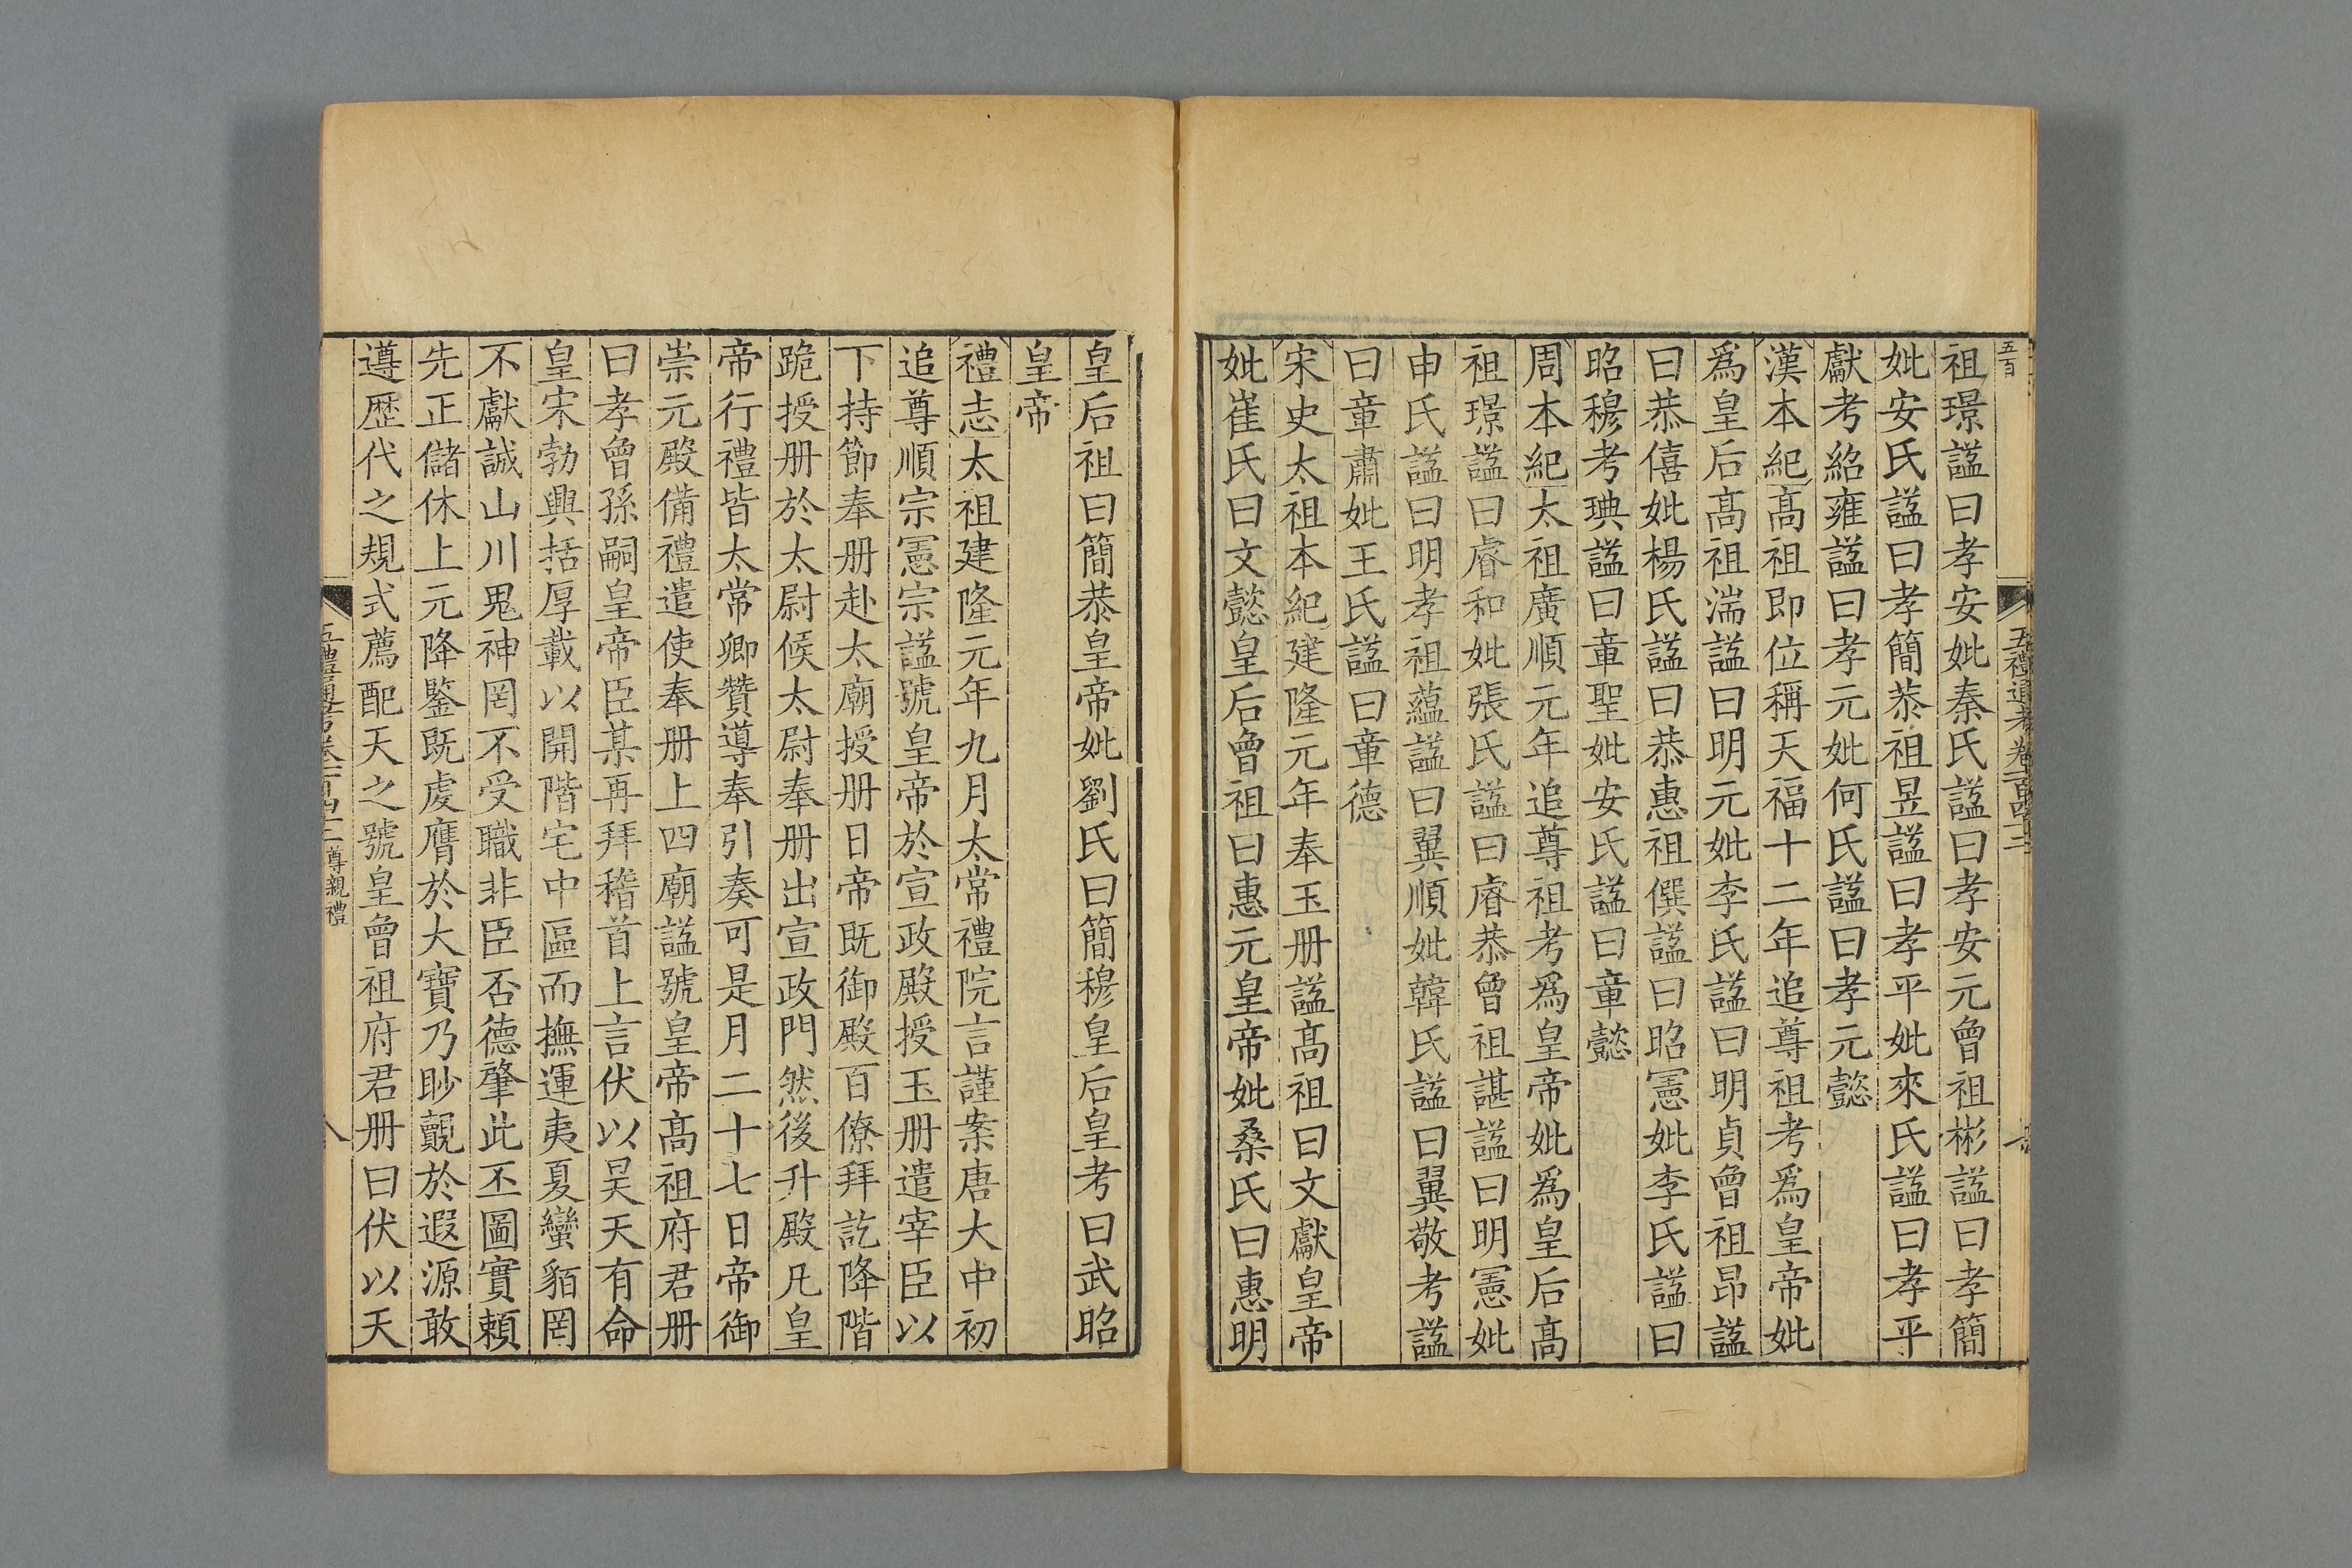 五百
五禮通考卷一百四十三
祖璟諡曰孝安妣秦氏諡曰孝安元曾祖彬諡曰孝簡
妣安氏諡曰孝簡恭祖昱諡曰孝平妣來氏諡曰孝平
獻考紹雍諡曰孝元妣何氏諡曰孝元懿
漢本紀高祖即位稱天福十二年追尊祖考爲皇帝妣
爲皇后高祖湍諡曰明元妣李氏諡曰明貞曾祖昂諡
曰恭僖妣楊氏諡曰恭惠祖僎諡曰昭憲妣李氏諡曰
昭穆考琠諡曰章聖妣安氏諡曰章懿
周本紀太祖廣順元年追尊祖考爲皇帝妣爲皇后高
祖璟諡曰睿和妣張氏諡曰睿恭曾祖諶諡曰明憲妣
申氏諡曰明孝祖蘊諡曰翼順妣韓氏諡曰翼敬考諡
曰章肅妣王氏諡曰章德
宋史太祖本紀建隆元年奉玉册諡高祖曰文獻皇帝
妣崔氏曰文懿皇后曾祖曰惠元皇帝妣桑氏曰惠明
皇后祖曰簡恭皇帝妣劉氏曰簡穆皇后皇考曰武昭
皇帝
禮志太祖建隆元年九月太常禮院言謹案唐大中初
追尊順宗憲宗諡號皇帝於宣政殿授玉册遣宰臣以
下持節奉册赴太廟授册日帝既御殿百僚拜訖降階
跪授册於太尉候太尉奉册出宣政門然後升殿凡皇
帝行禮皆太常卿贊導奉引奏可是月二十七日帝御
崇元殿備禮遣使奉册上四廟諡號皇帝高祖府君册
曰孝曾孫嗣皇帝臣某再拜稽首上言伏以昊天有命
皇宋勃興括厚載以開階宅中區而撫運夷夏蠻貊罔
不獻誠山川鬼神罔不受職非臣否德肇此丕圖實賴
先正儲休上元降鑒既虔膺於大寶乃眇覿於遐源敢
遵歷代之規式薦配天之號皇曾祖府君册曰伏以天
五禮通考卷一百四十三 尊親禮
八